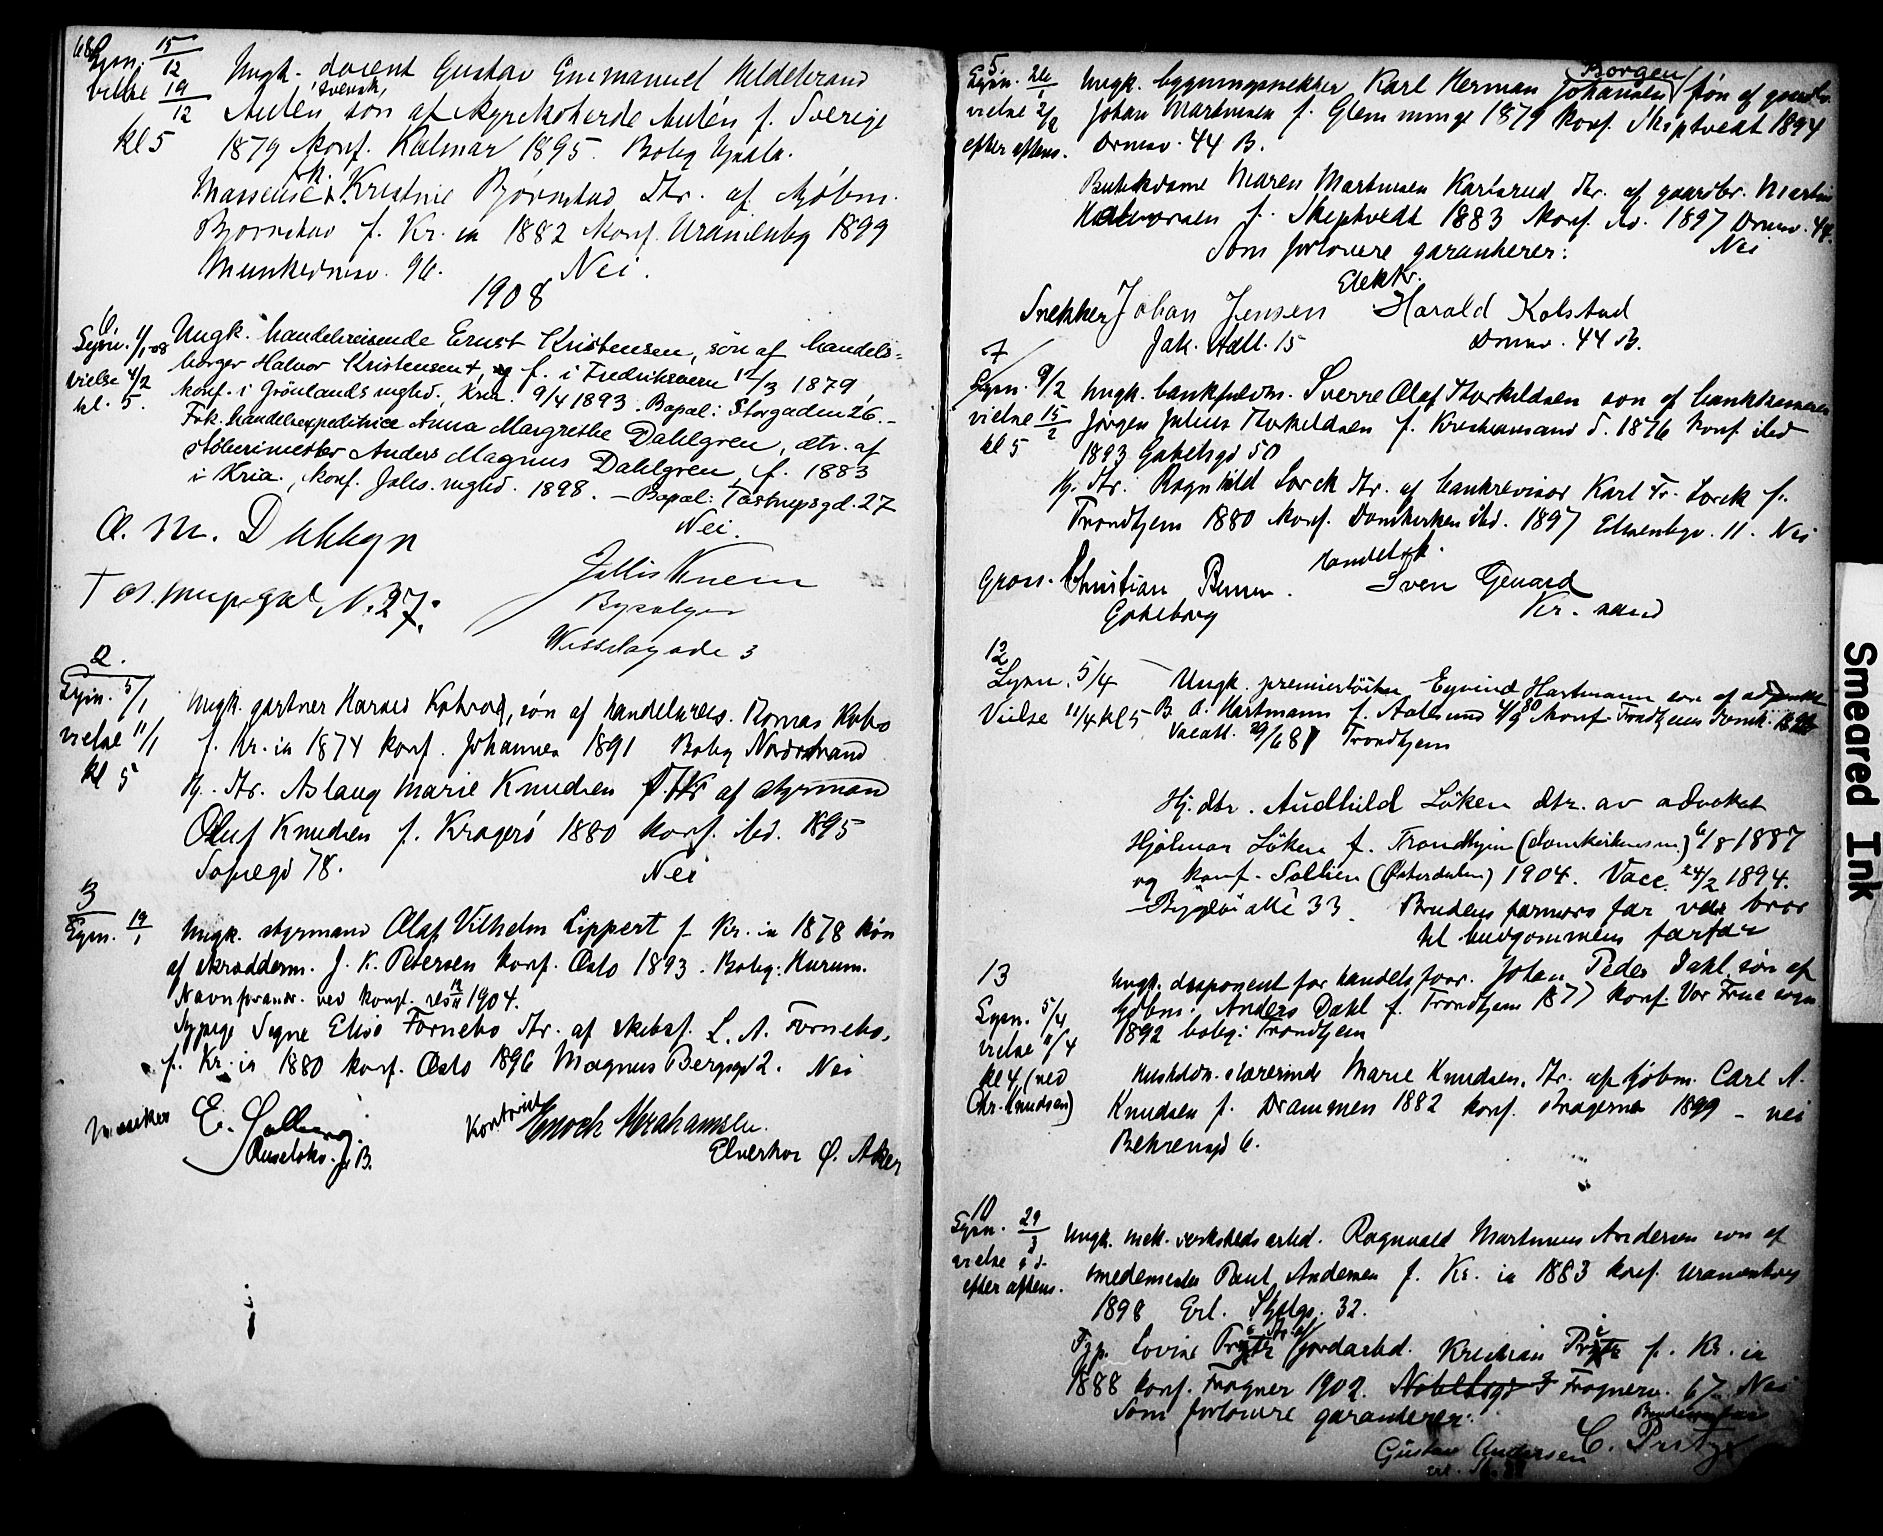 68
Lysn. 15/12
vielse 19/12
kl 5
Ungk. docent Gustav Emmanuel Hildebrand
svensk
Aulén søn af kyrkoherde Aulén f. Sverige
1879 konf. Kalmar 1895. Bolig Upsala.
Masseuse frk. Kristine Bjørnstad dtr. af kjøbm.
Bjørnstad f. Kr.ia 1882 konf. Uranienbg 1899
Munkedmsv. 96. Nei.
1908
Lysn. 1/1-08
vielse 4/2
kl. 5.
Ungk. handelsreisende Ernst Kristensen, søn af handels-
borger Halvor Kristensen +, f. i Fredriksværn 12/3 1879,
konf. i Grönlands mghd., Kria. 9/4 1893. Bopæl: Storgaden 26.-
Frk. handelsexpeditrice Anna Margrethe Dahlgren, dtr. af
støberimester Anders Magnus Dahlgren, f. 1883
i Kria., konf. Johs. mghd. 1898. - Bopæl: Tostrupsgd. 27
Nei.
A. M. Dahlgren
Tostrupsgade N. 27.
Bypolger
Wesselsgade 3
2.
Lysn. 5/1
vielse 11/1
kl 5
Ungk. gartner Harald Kobro, søn af handelsreis. Thomas Kobro
f. Kr.ia 1874 konf. Johannes 1891 Bolig Nordstrand
Hj. dtr. Aslaug Marie Knudsen dtr af styrmand
Oluf Knudsen f. Kragerö 1880 konf. ibd. 1895
Sofiegd 78. Nei
3
Lysn. 19/1
Ungk. styrmand Olaf Vilhelm Lippert f. Kr.ia 1878 søn
af skrædderm. J. K. Petersen konf. Oslo 1893. Bolig: Hurum.
Navnforandr. ved kongl. res 1904.
Sypige Signe Elise Fornebo dtr. af skibsf. L. A. Fornebo,
f. Kr.ia 1880 konf. Oslo 1896 Magnus Bergsgd 2. Nei
E. Solberg
Ruseløkv. B.
Kontorist Enoch Abrahamsen.
Elverhoi Ø. Aker
5.
Lysn. 26/1
vielse 2/2
efter aftens.
Borgen
Ungk. bygningssnekker Karl Herman Johansen søn af gaardbr.
Johan Martinsen f. Glemminge 1879 konf. Skiptvedt 1894
Drmsv. 44 B.
Butikdame Maren Martinsen Karlsrud dtr. af gaardbr. Martin
Halvorsen f. Skiptvedt 1883 konf. ibd. 1897 Drmsv. 44.
Som forlovere garanterer: Nei
Snekker Johan Jensen
Jak. Aall. 15
Elektr. Harald Kolstad
Drmsv. 44 B.
7
Lysn. 9/2
vielse 15/2
kl 5
Ungk. bankfuldm. Sverre Olaf Torkildsen søn af bankkasserer
Jørgen Julius Torkildsen f. Kristiansand S. 1876 konf. ibd
1893 Gabelsgd 50
Hj. dtr. Ragnhild Lorck dtr. af bankrevisor Karl Fr. Lorck f.
Trondhjem 1880 konf. Domkirken ibd. 1897 Eilersenbgv. 11. Nei
Gross. Christian
Göteborg
Handelsfuldm. Sven
Kr. sand
12
Lysn. 5/4
Vielse 11/4 kl 5
Ungk. premierlöitn. Eyvind Hartmann søn af adjunkt
B. A. Hartmann f. Aalesund 4/9 80 konf. Trondhjems Domk.
Vacatt. 29/6 81 Trondhjem
Hj. dtr. Audhild Løken dtr. av advokat
Hjalmar Løken f. Trondhjem (domkirkens m.) 6/8 1887
og konf. Sollien (Østerdalen) 1904. Vacc. 24/2 1894.
Bygdö allé 33. Brudens farmors far var bror
til brudgommens farfar
13
Lysn. 5/4
vielse 11/4
kl 4 (ved
Chr. Knudsen)
Ungk. disponent for handelsforr. Johan Peder Dahl søn af
kjøbm. Anders Dahl f. Trondhjem 1877 konf. Vor Frue sogn
1892 bolig: Trondhjem
Husholdn.slærerinde Marie Knudsen, dtr. af kjøbm. Carl A.
Knudsen f. Drammen 1882 konf. Bragernes 1899 - nei
Behrensgd 6.
10
Lysn. 29/3
vielse s.d.
efter aftens.
Ungk. mek. verkstedsarbd. Ragnvald Martinus Andersen søn af
smedemester Paul Andersen f. Kr.ia 1883 konf. Uranienborg
1898 Erl. Skjalgs. 32.
Frk. Lovise Pritz dtr. af jordarbd. Kristian Pritz f. Kr.ia
1888 konf. Frogner 1902. Frognerv. 67 Nei
Som forlovere garanterer:
Gustav Andersen
C. Pritz
Smeared Ink